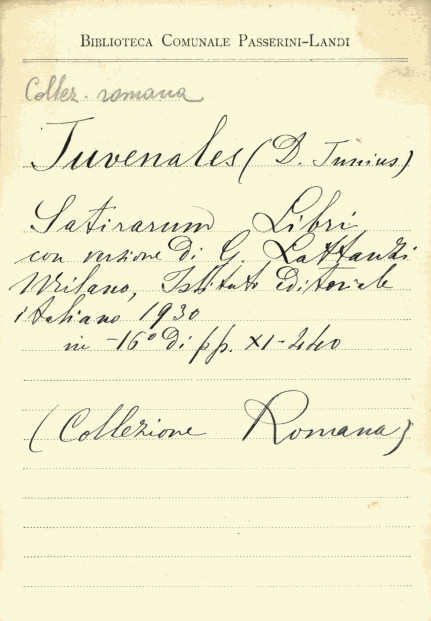 BIBLIOTECA COMUNALE PASSERINI-LANDI
Collez. romana
Juvenales (D. Junius)
Satirarum Libri
con versione di G. Lattanzi
Milano, Istituto editoriale
italiano 1930
in -16° di pp. XI-440
(Collezione Romana)